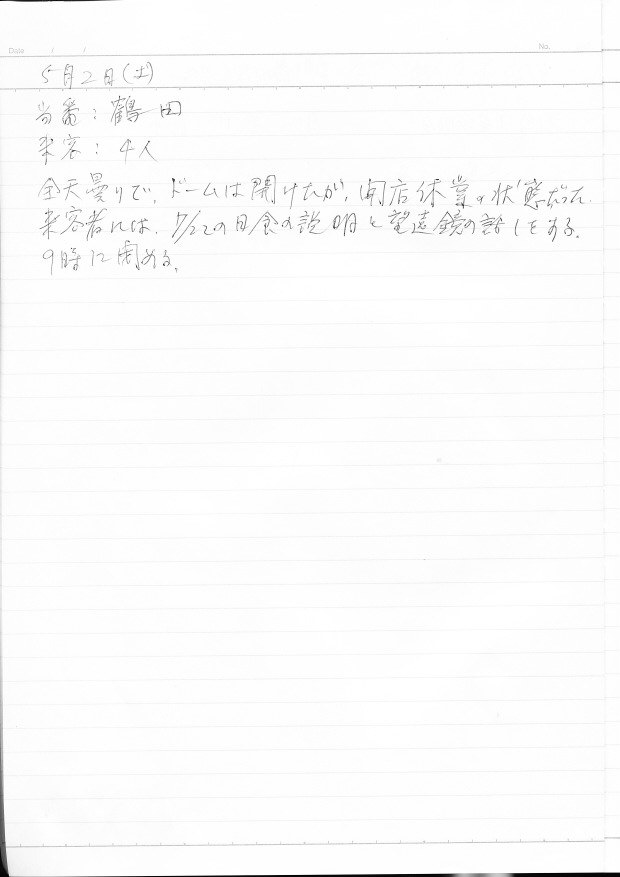 Date / /
No.
5月2日(土)
当番：鶴田
来客：4人
全天曇りで、ドームは開けたが、開店休業の状態だった.
来客者には、7/22の日食の説明と望遠鏡の話しをする.
9時に閉める。